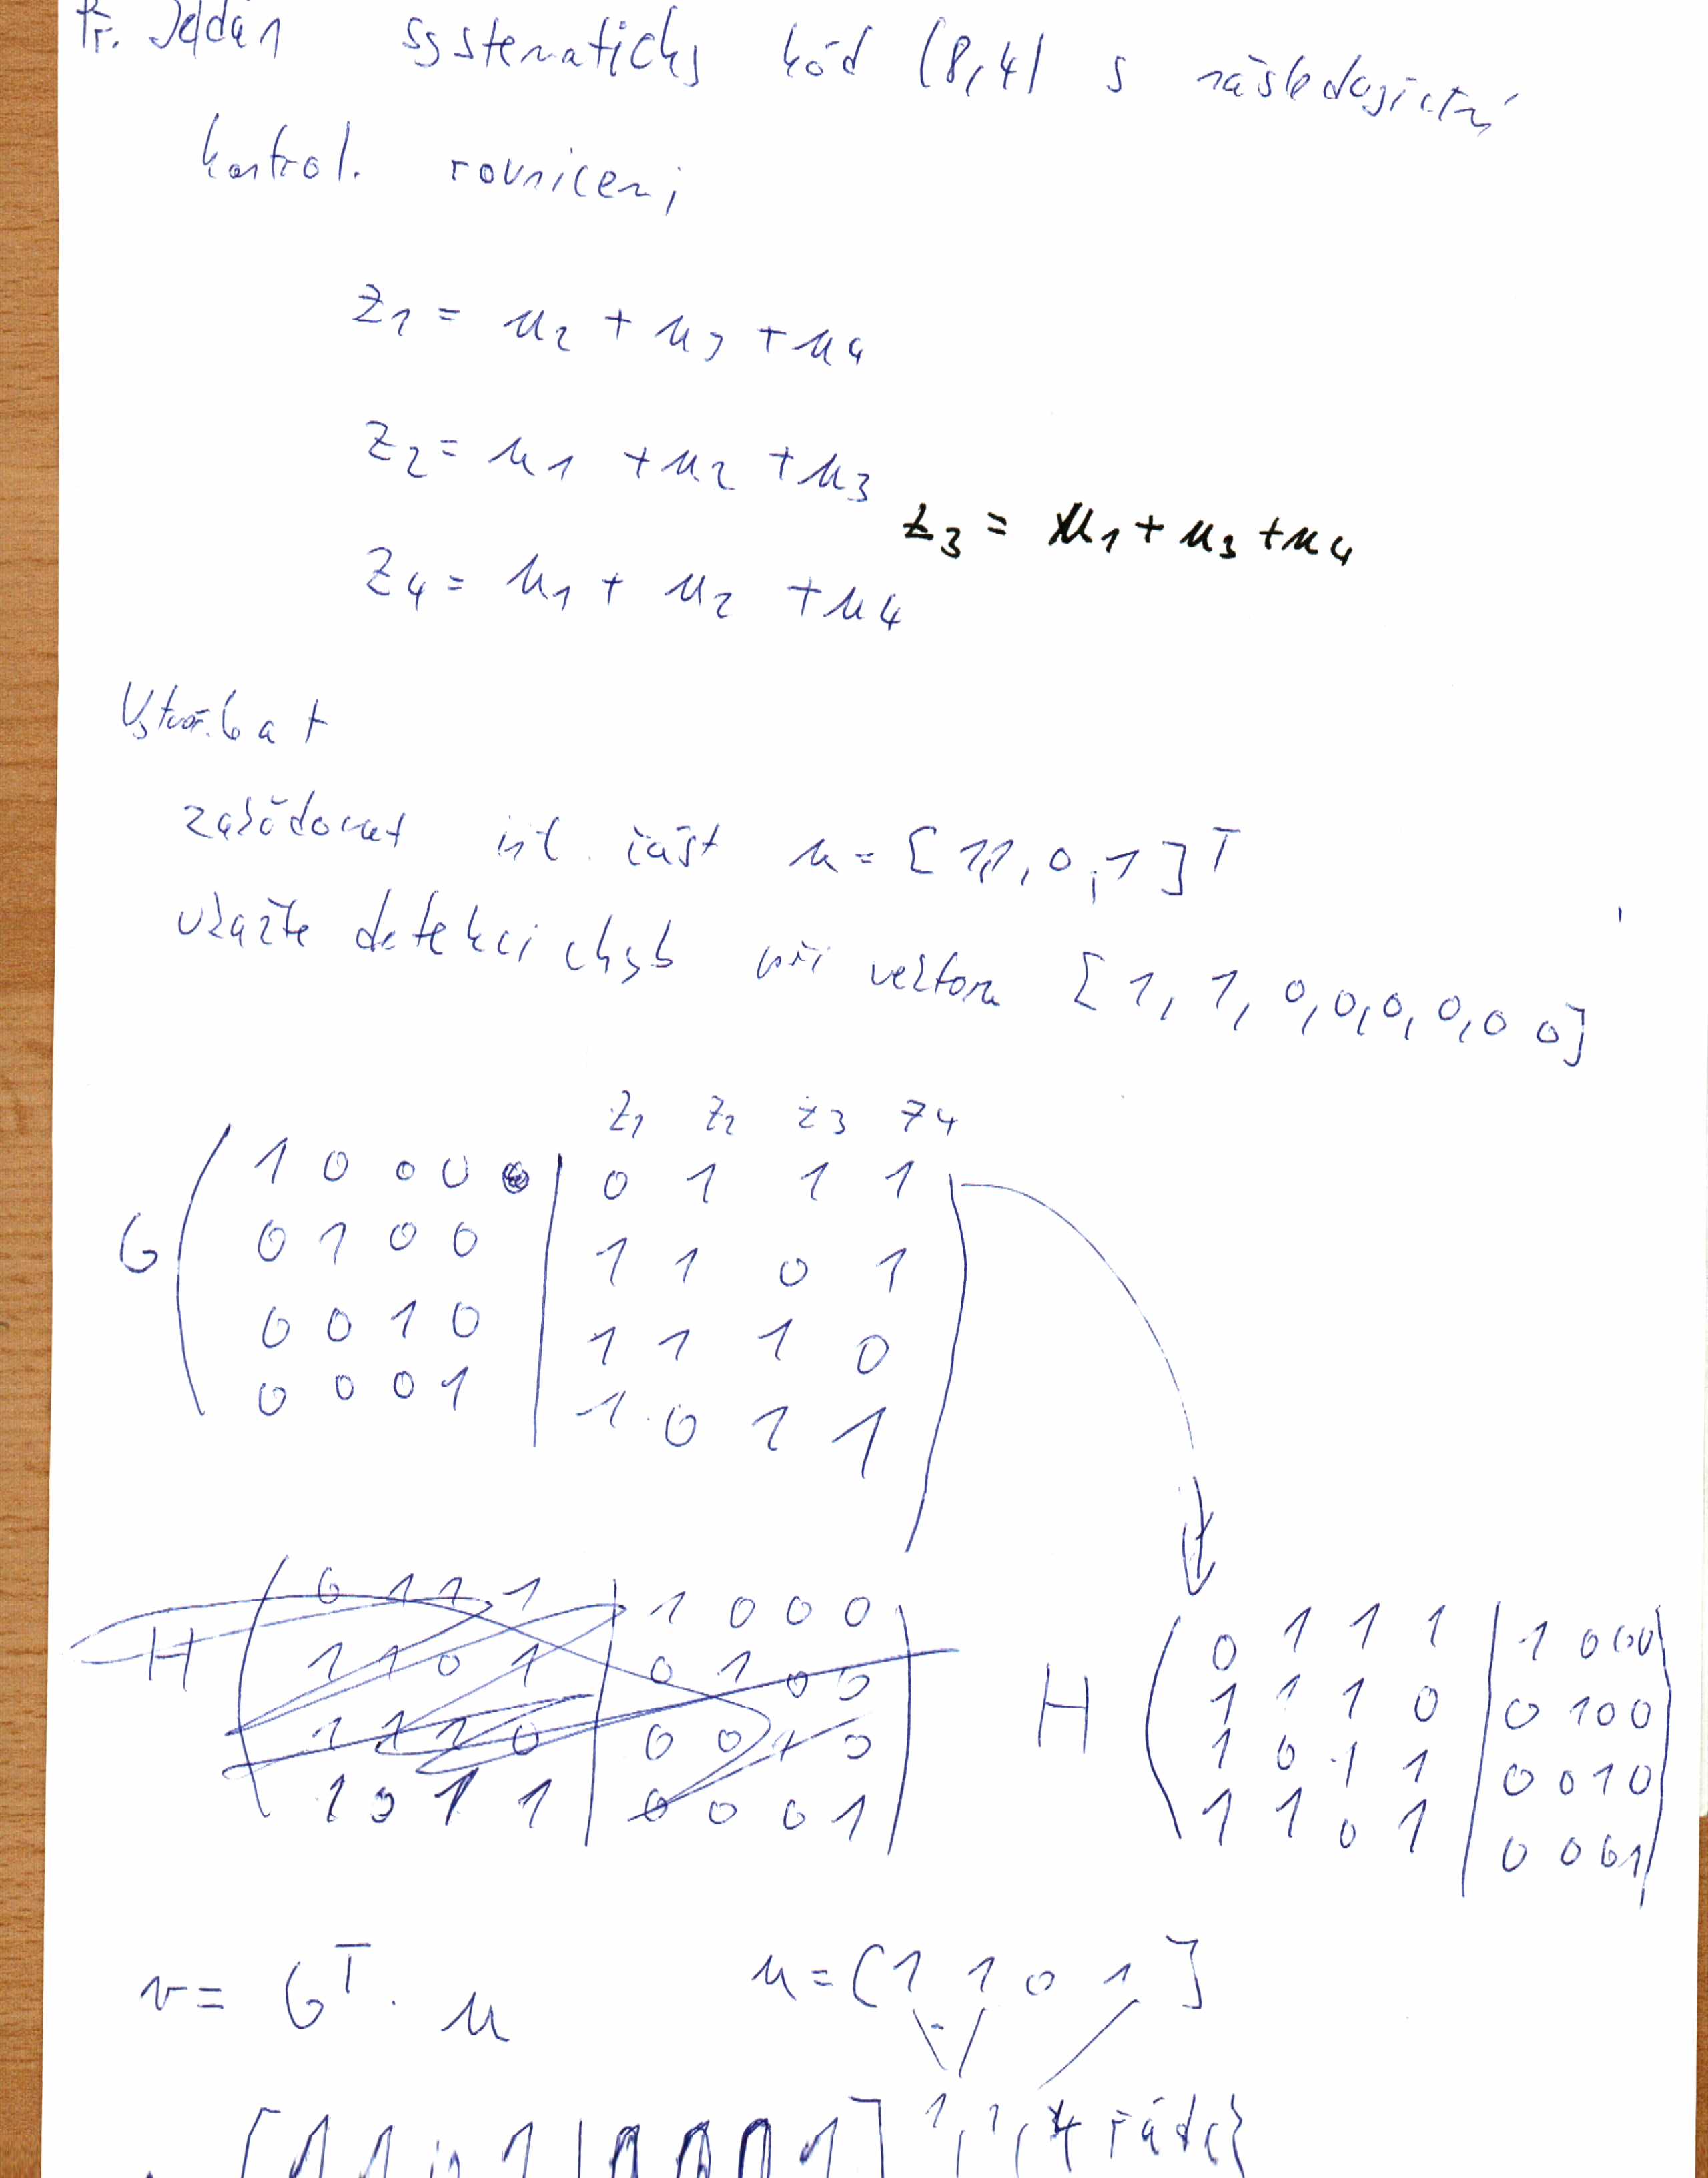 Př. Je dán systematický kód (8,4) s následujícími
kontrol. rovnicemi
z1 = u2 + u3 + u4
z2 = u1 + u2 + u3
z3 = u1 + u3 + u4
z4 = u1 + u2 + u4
Vytvořit
zakódovat inf. část u = [1,1,0,1]T
ukažte detekci chyb při vektoru [1,1,0,0,0,0,0 0]
z1 z2 z3 z4
1 0 0 0 | 0 1 1 1
G 0 1 0 0 | 1 1 0 1
0 0 1 0 | 1 1 1 0
0 0 0 1 | 1 0 1 1
0 1 1 1 | 1 0 0 0
H 1 1 0 1 | 0 1 0 0
1 1 1 0 | 0 0 1 0
1 0 1 1 | 0 0 0 1
0 1 1 1 | 1 0 0 0
H 1 1 1 0 | 0 1 0 0
1 0 1 1 | 0 0 1 0
1 1 0 1 | 0 0 0 1
v = GT . u u = [1 1 0 1]